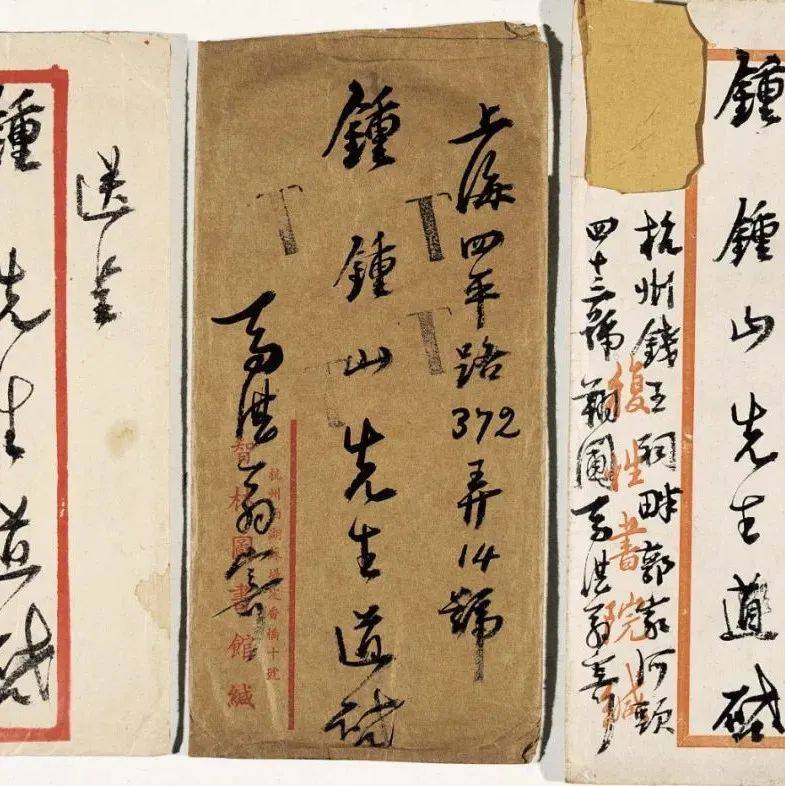 鍾鍾山先生道啟
杭州錢王祠畔郭家河頭
四十三號 園馬湛翁寄
復性書院緘
上海四平路372弄14號
鍾鍾山先生道啟
馬湛翁寄
杭州西湖蘇堤定香橋十號
智林圖書館緘
送呈
鍾先生道啟